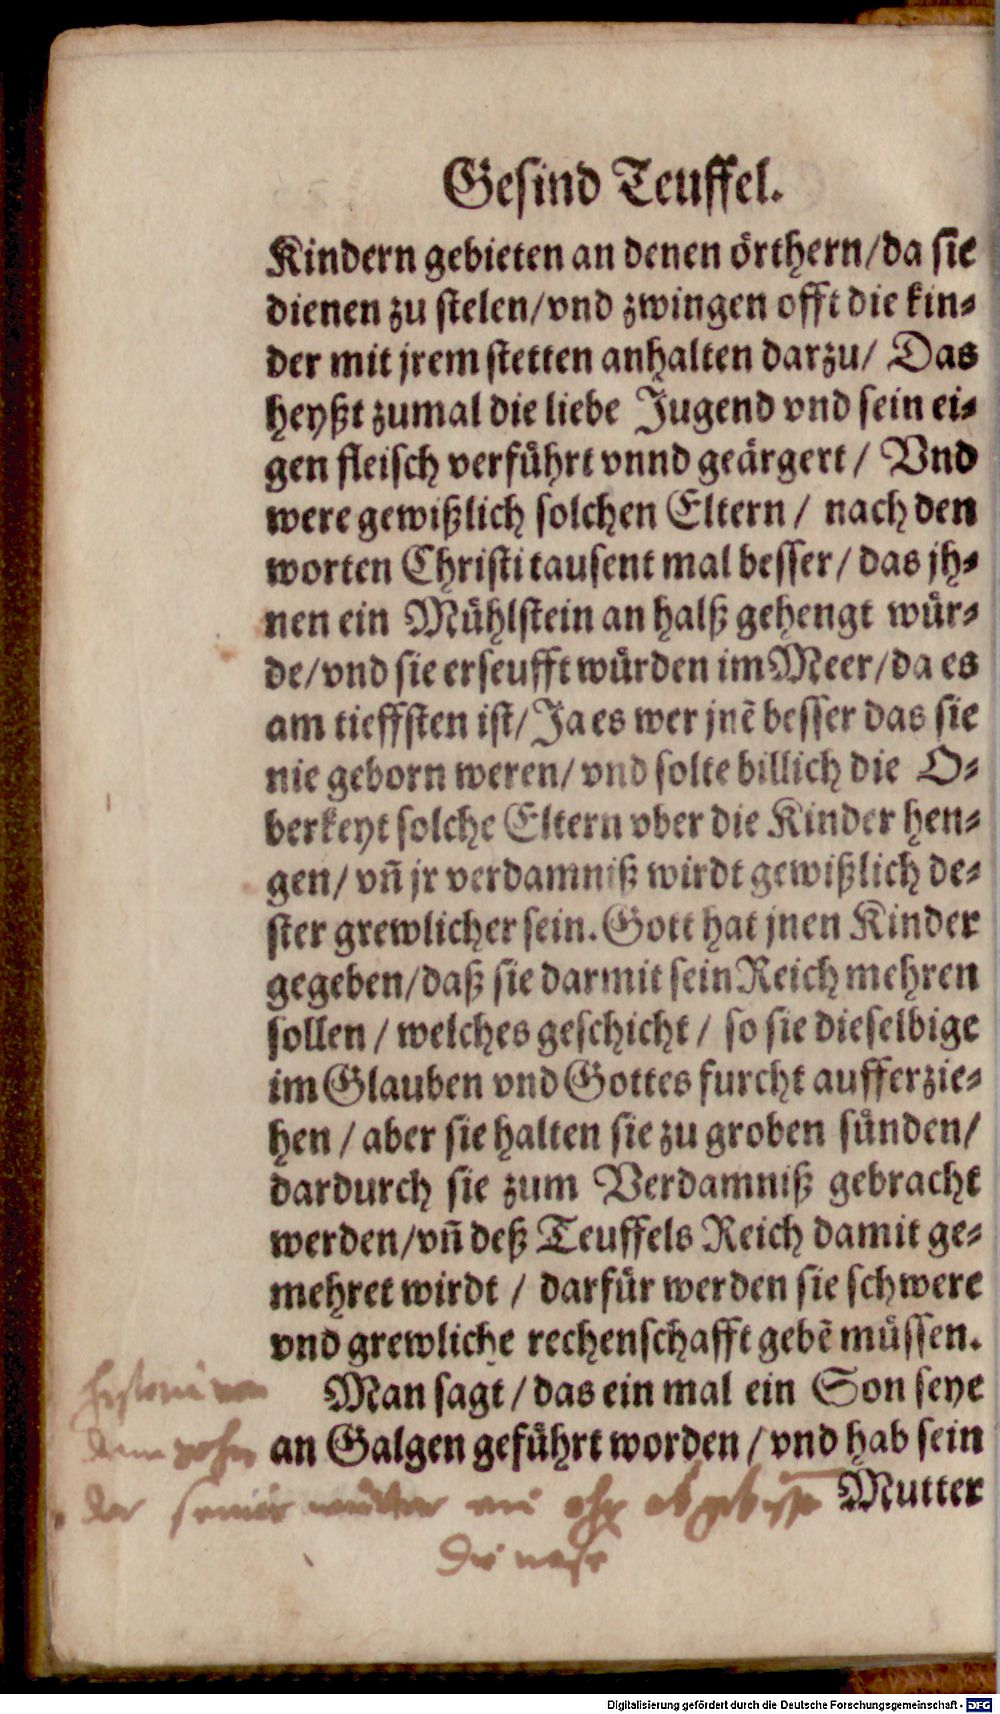 Gesind Teuffel.
Kindern gebieten an denen örthern/da sie
dienen zu stelen/vnd zwingen offt die kin⸗
der mit jrem stetten anhalten darzu/ Das
heyßt zumal die liebe Jugend vnd sein ei⸗
gen fleisch verfuͤhrt vnnd geaͤrgert / Vnd
were gewißlich solchen Eltern / nach den
worten Christi tausent mal besser/ das jh⸗
nen ein Muͤhlstein an halß gehengt wuͤr⸗
de/vnd sie erseufft wuͤrden im Meer/da es
am tieffsten ist/Ja es wer jnē besser das sie
nie geborn weren/ vnd solte billich die O⸗
berkeyt solche Eltern vber die Kinder hen⸗
gen/ vn̄ jr verdamniß wirdt gewißlich de⸗
ster grewlicher sein. Gott hat jnen Kinder
gegeben/daß sie darmit sein Reich mehren
sollen / welches geschicht / so sie dieselbige
im Glauben vnd Gottes furcht aufferzie⸗
hen / aber sie halten sie zu groben suͤnden/
dardurch sie zum Verdamniß gebracht
werden/vn̄ deß Teuffels Reich damit ge⸗
mehret wirdt / darfuͤr werden sie schwere
vnd grewliche rechenschafft gebē muͤssen.
Man sagt / das ein mal ein Son seye
an Galgen gefuͤhrt worden / vnd hab sein
Mutter
historia von
dem sohn
der seiner mutter ein ohr abgebissen
die nase
Digitalisierung gefördert durch die Deutsche Forschungsgemeinschaft - DFG